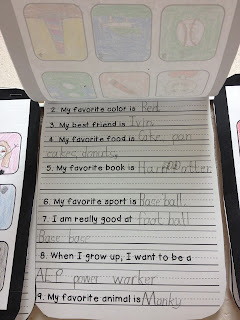 2. My favorite color is Red.
3. My best friend is Ivin.
4. My favorite food is Cake, pan
cakes, donuts,
5. My favorite book is Harry Potter
6. My favorite sport is Base ball.
7. I am really good at foot ball
Base baer
8. When I grow up, I want to be a
AEP power warker
9. My favorite animal is Monky